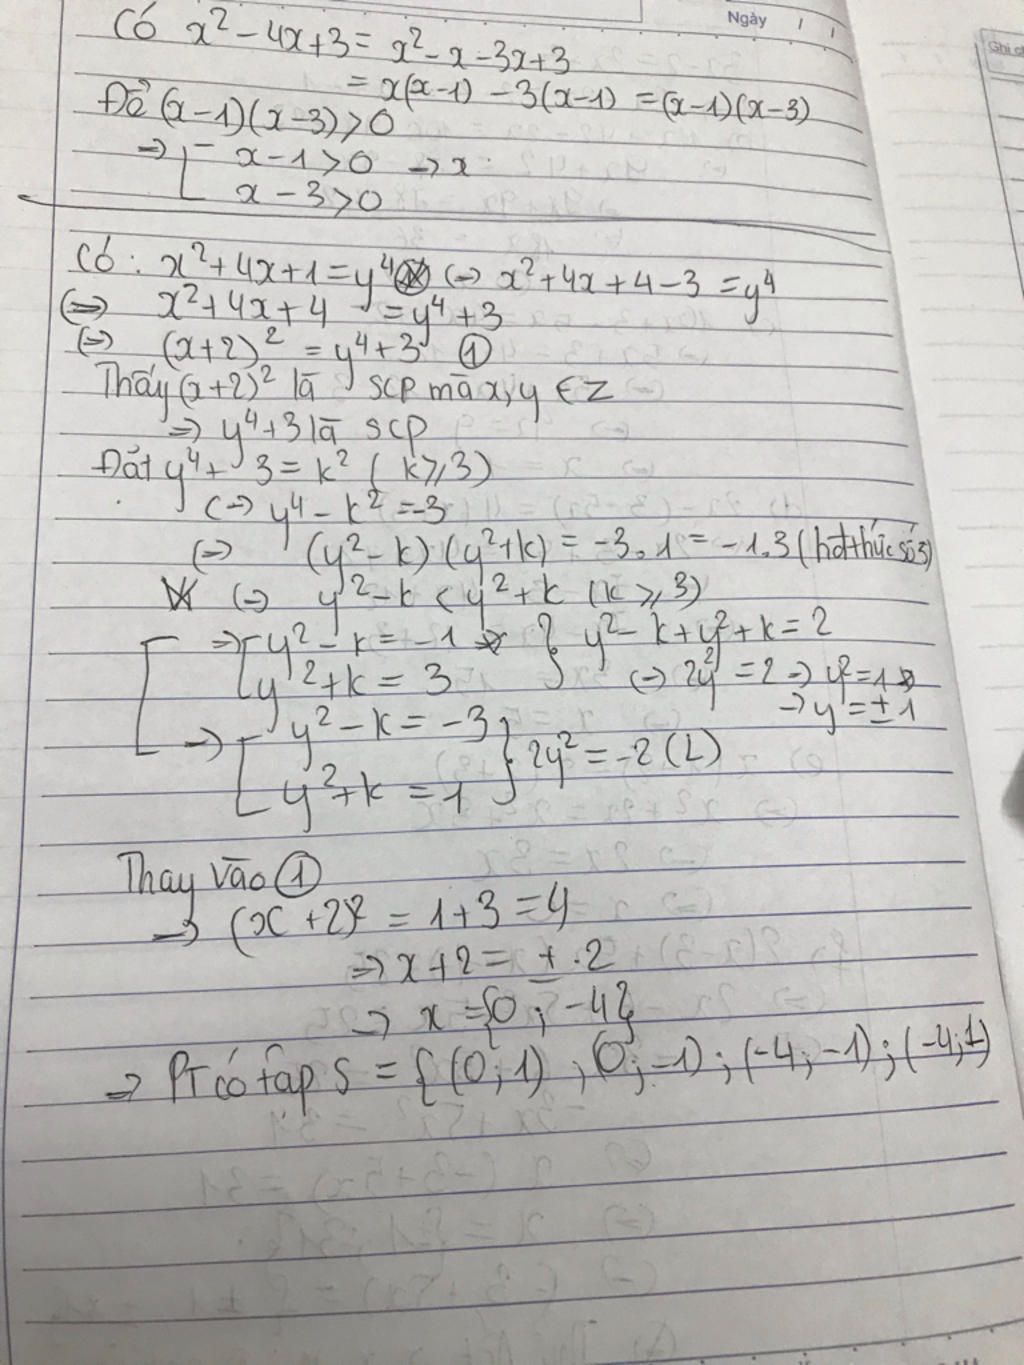 Ngày / /
Ghi ch
Có x² - 4x + 3 = x² - x - 3x + 3
= x(x-1) - 3(x-1) = (x-1)(x-3)
Để (x-1)(x-3) > 0
=> [ x - 1 > 0 => x
x - 3 > 0
Có: x² + 4x + 1 = y⁴ (=) x² + 4x + 4 - 3 = y⁴
(=) x² + 4x + 4 = y⁴ + 3
(=) (x+2)² = y⁴ + 3 ①
Thấy (x+2)² là SCP mà x, y ∈ Z
=> y⁴ + 3 là SCP
Đặt y⁴ + 3 = k² ( k ⩾ 3)
(=) y⁴ - k² = -3
(=) (y² - k) (y² + k) = -3.1 = -1.3 (hđt thức số 3)
(=) y² - k < y² + k (k ⩾ 3)
=> [ y² - k = -1 } y² - k + y² + k = 2
y² + k = 3 (=) 2y² = 2 => y² = 1
=> y = ± 1
=> [ y² - k = -3 } 2y² = -2 (L)
y² + k = 1
Thay vào ①
=> (x + 2)² = 1 + 3 = 4
=> x + 2 = ± 2
=> x = {0 ; -4}
=> PT có tập S = { (0;1) ; (0;-1) ; (-4;-1) ; (-4;1)